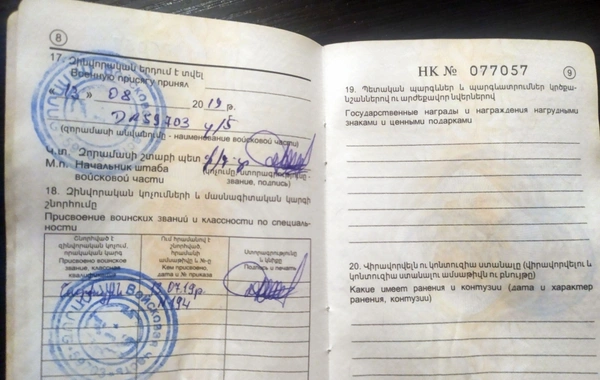 8
17. Զինվորական երդում է տվել
Военную присягу принял
« 13 » 08 2019 թ.
59703
(զորամասի անվանումը - наименование войсковой части)
Կ.տ. Զորամասի շտաբի պետ
М.п. Начальник штаба
войсковой части
звание, подпись)
18. Զինվորական կոչումների և մասնագիտական կարգի
շնորհումը
Присвоение воинских званий и классности по специаль-
ности
Շնորհված է
զինվորական կոչում,
որակական կարգ
Присвоено воинское
звание, классная
Ում հրամանով է
շնորհված,
հրամանի
ամսաթիվը և №-ը
Кем присвоено,
дата и № приказа
Ստորագրությունը
և կնիքը
Подпись и печать
07.19թ.
194
Войсковая часть
НК № 077057
9
19. Պետական պարգևներ և պարգևատրումներ կրծքա-
նշաններով ու արժեքավոր նվերներով
Государственные награды и награждения нагрудными
знаками и ценными подарками
20. Վիրավորվել ու կոնտուզիա ստանալը (վիրավորվելու և
կոնտուզիա ստանալու ամսաթիվն ու բնույթը)
Какие имеет ранения и контузии (дата и характер
ранения, контузии)